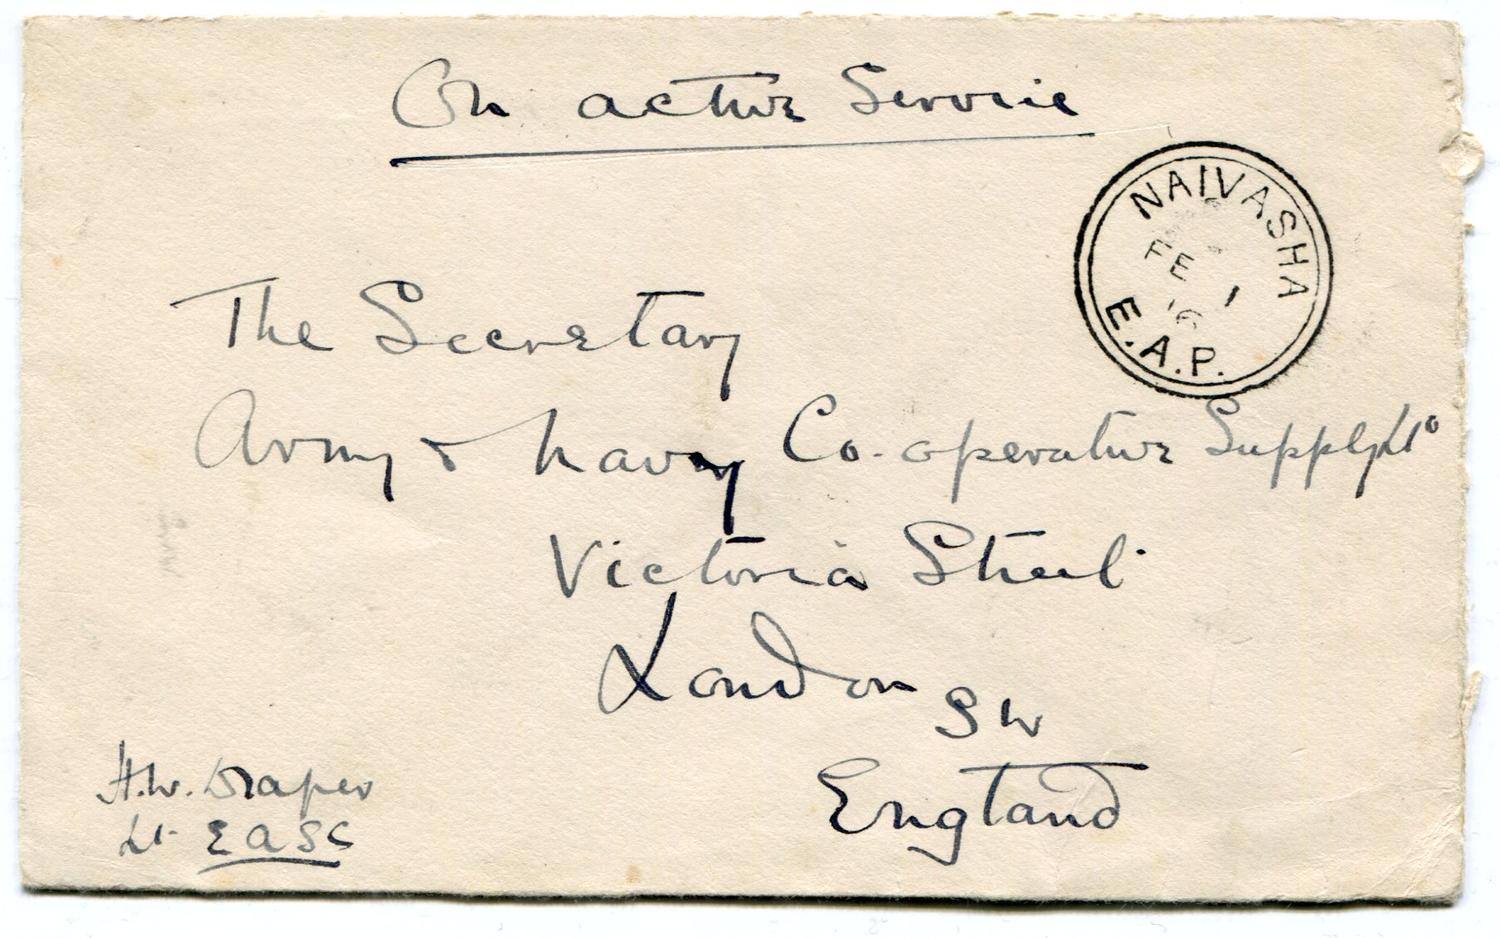 On active Service
NAIVASHA
FE 1
16
E.A.P.
The Secretary
Army & Navy Co-operative Supply Ltd
Victoria Street
London
SW
England
H.W. Draper
Lt EASC